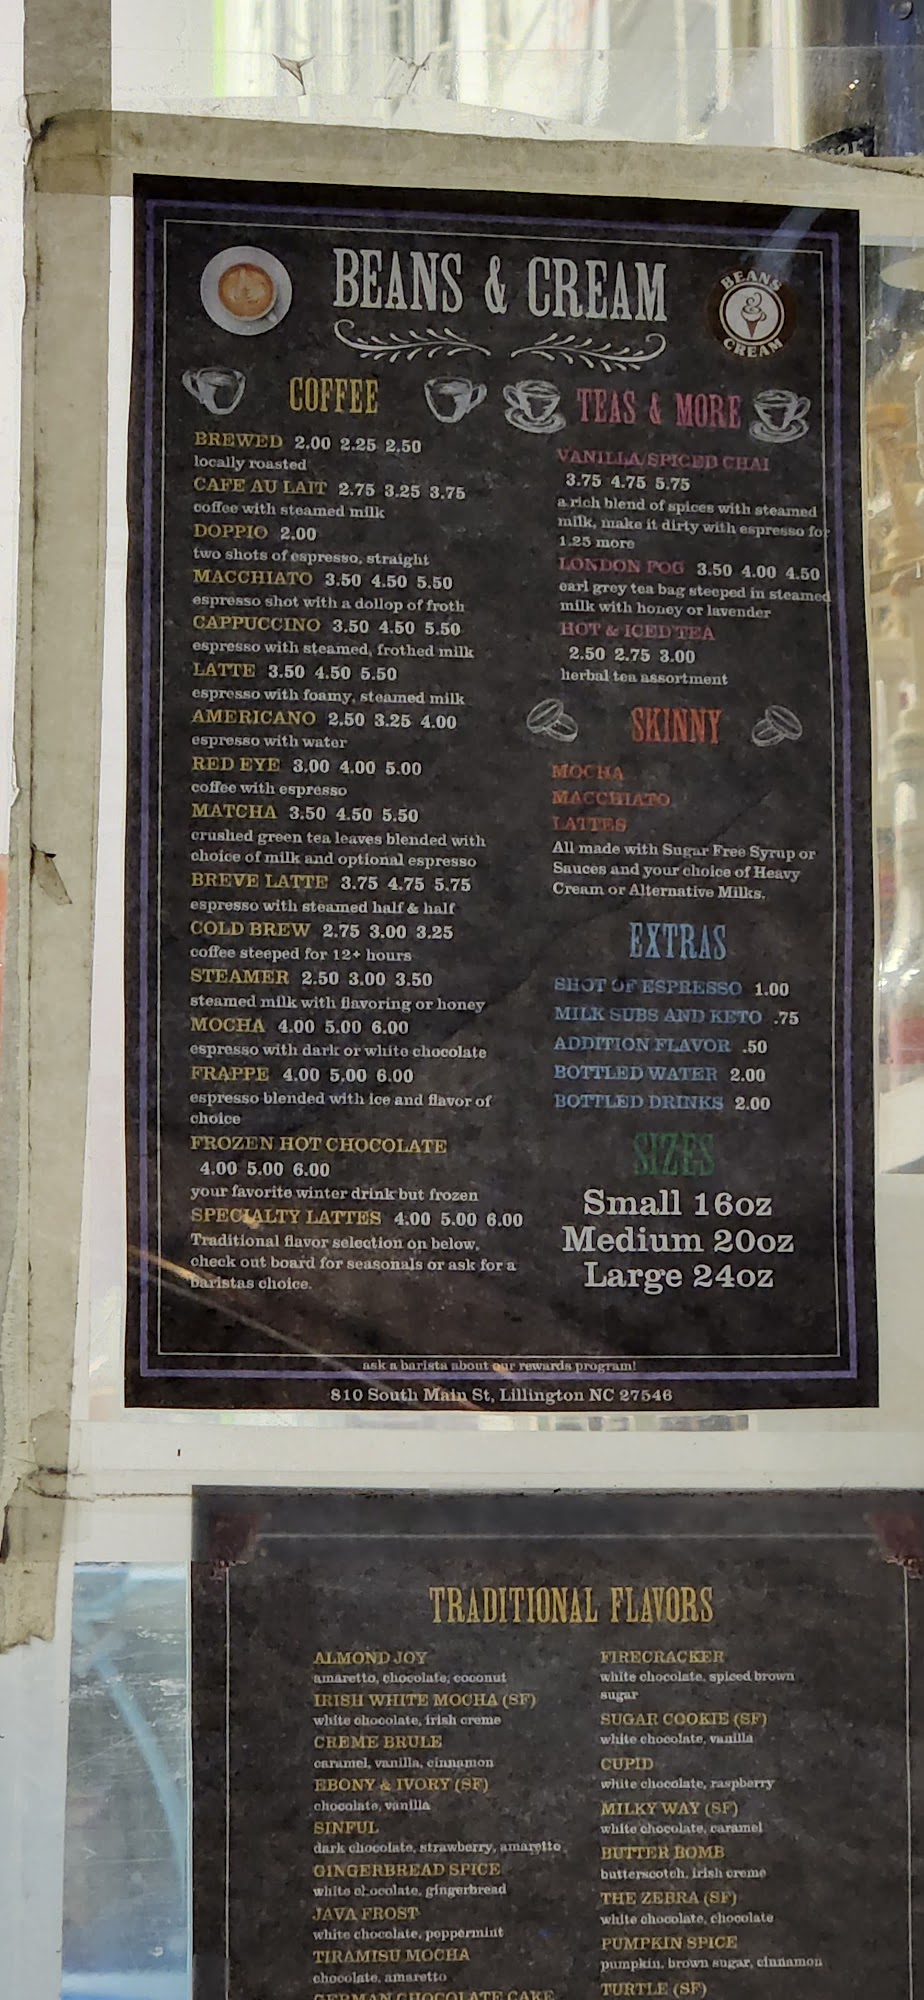 BEANS & CREAM
BEANS
CREAM
COFFEE
BREWED 2.00 2.25 2.50
locally roasted
CAFE AU LAIT 2.75 3.25 3.75
coffee with steamed milk
DOPPIO 2.00
two shots of espresso, straight
MACCHIATO 3.50 4.50 5.50
espresso shot with a dollop of froth
CAPPUCCINO 3.50 4.50 5.50
espresso with steamed, frothed milk
LATTE 3.50 4.50 5.50
espresso with foamy, steamed milk
AMERICANO 2.50 3.25 4.00
espresso with water
RED EYE 3.00 4.00 5.00
coffee with espresso
MATCHA 3.50 4.50 5.50
crushed green tea leaves blended with
choice of milk and optional espresso
BREVE LATTE 3.75 4.75 5.75
espresso with steamed half & half
COLD BREW 2.75 3.00 3.25
coffee steeped for 12+ hours
STEAMER 2.50 3.00 3.50
steamed milk with flavoring or honey
MOCHA 4.00 5.00 6.00
espresso with dark or white chocolate
FRAPPE 4.00 5.00 6.00
espresso blended with ice and flavor of
choice
FROZEN HOT CHOCOLATE
4.00 5.00 6.00
your favorite winter drink but frozen
SPECIALTY LATTES 4.00 5.00 6.00
Traditional flavor selection on below,
check out board for seasonals or ask for a
baristas choice.
TEAS & MORE
VANILLA/SPICED CHAI
3.75 4.75 5.75
a rich blend of spices with steamed
milk, make it dirty with espresso for
1.25 more
LONDON FOG 3.50 4.00 4.50
earl grey tea bag steeped in steamed
milk with honey or lavender
HOT & ICED TEA
2.50 2.75 3.00
herbal tea assortment
SKINNY
MOCHA
MACCHIATO
LATTES
All made with Sugar Free Syrup or
Sauces and your choice of Heavy
Cream or Alternative Milks.
EXTRAS
SHOT OF ESPRESSO 1.00
MILK SUBS AND KETO .75
ADDITION FLAVOR .50
BOTTLED WATER 2.00
BOTTLED DRINKS 2.00
SIZES
Small 16oz
Medium 20oz
Large 24oz
ask a barista about our rewards program!
810 South Main St, Lillington NC 27546
TRADITIONAL FLAVORS
ALMOND JOY
amaretto, chocolate, coconut
IRISH WHITE MOCHA (SF)
white chocolate, irish creme
CREME BRULE
caramel, vanilla, cinnamon
EBONY & IVORY (SF)
chocolate, vanilla
SINFUL
dark chocolate, strawberry, amaretto
GINGERBREAD SPICE
white chocolate, gingerbread
JAVA FROST
white chocolate, peppermint
TIRAMISU MOCHA
chocolate, amaretto
GERMAN CHOCOLATE CAKE
FIRECRACKER
white chocolate, spiced brown
sugar
SUGAR COOKIE (SF)
white chocolate, vanilla
CUPID
white chocolate, raspberry
MILKY WAY (SF)
white chocolate, caramel
BUTTER BOMB
butterscotch, irish creme
THE ZEBRA (SF)
white chocolate, chocolate
PUMPKIN SPICE
pumpkin, brown sugar, cinnamon
TURTLE (SF)